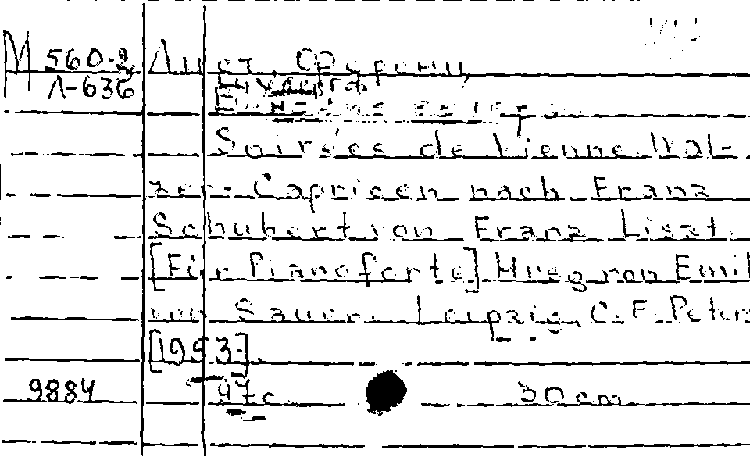 М 560-2 Лист, Ференц
Л-636
Soirées de Vienne. Wal-
zer-Capricen nach Franz
Schubert von Franz Liszt.
[Für Pianoforte] Hrsg von Emil
von Sauer. Leipzig, C. F. Peters
[1953].
9884 97c 30 cm